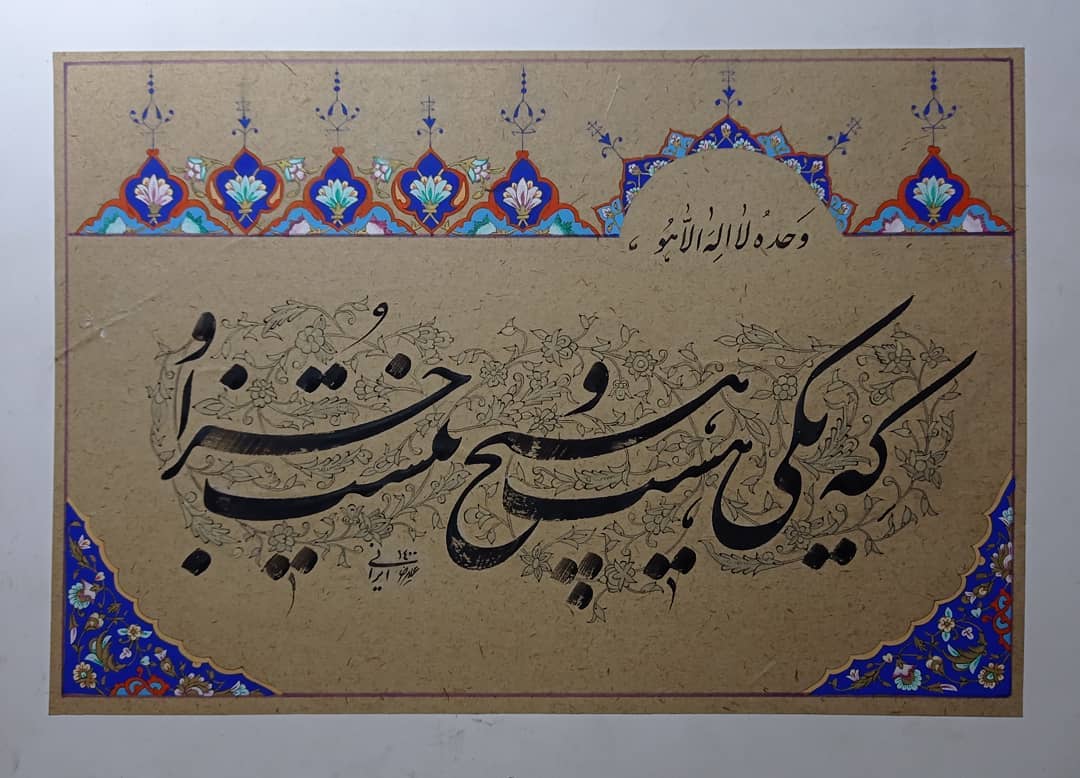 وَحدهُ لا اِلهَ الّا هُو
که یکی هست و هیچ نیست جُز او
۱۴۰۰
ایرانی